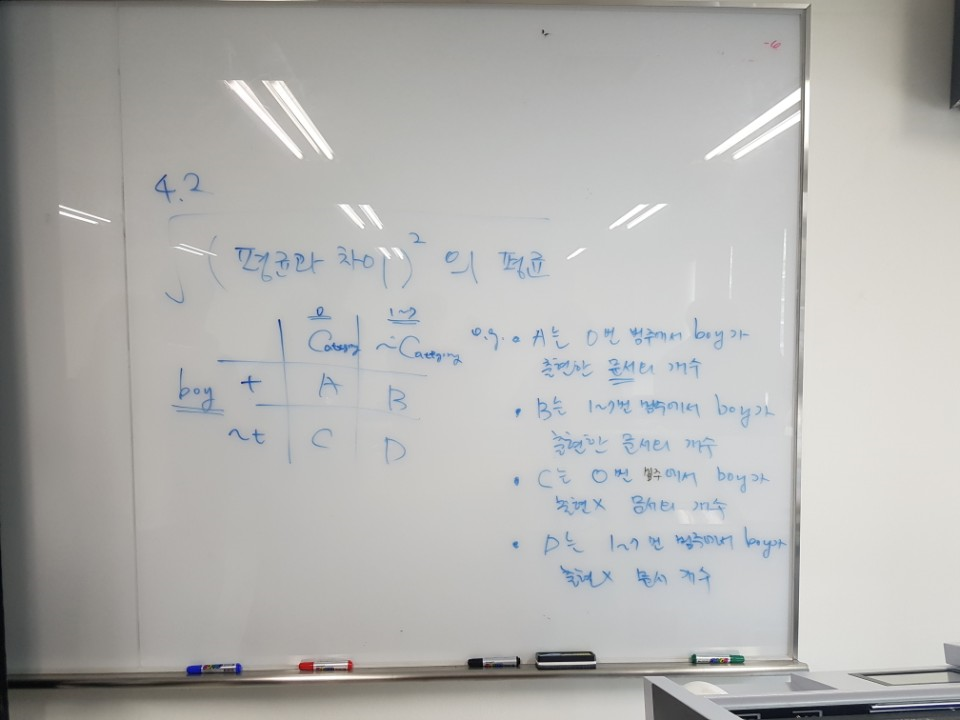 -6
4.2
√(평균과 차이)² 의 평균
0 1~7
Category ~Category
boy t A B
~t C D
e.g. • A는 0번 범주에서 boy가
출현한 문서의 개수
• B는 1~7번 범주에서 boy가
출현한 문서의 개수
• C는 0번 범주에서 boy가
출현X 문서의 개수
• D는 1~7번 범주에서 boy가
출현X 문서 개수